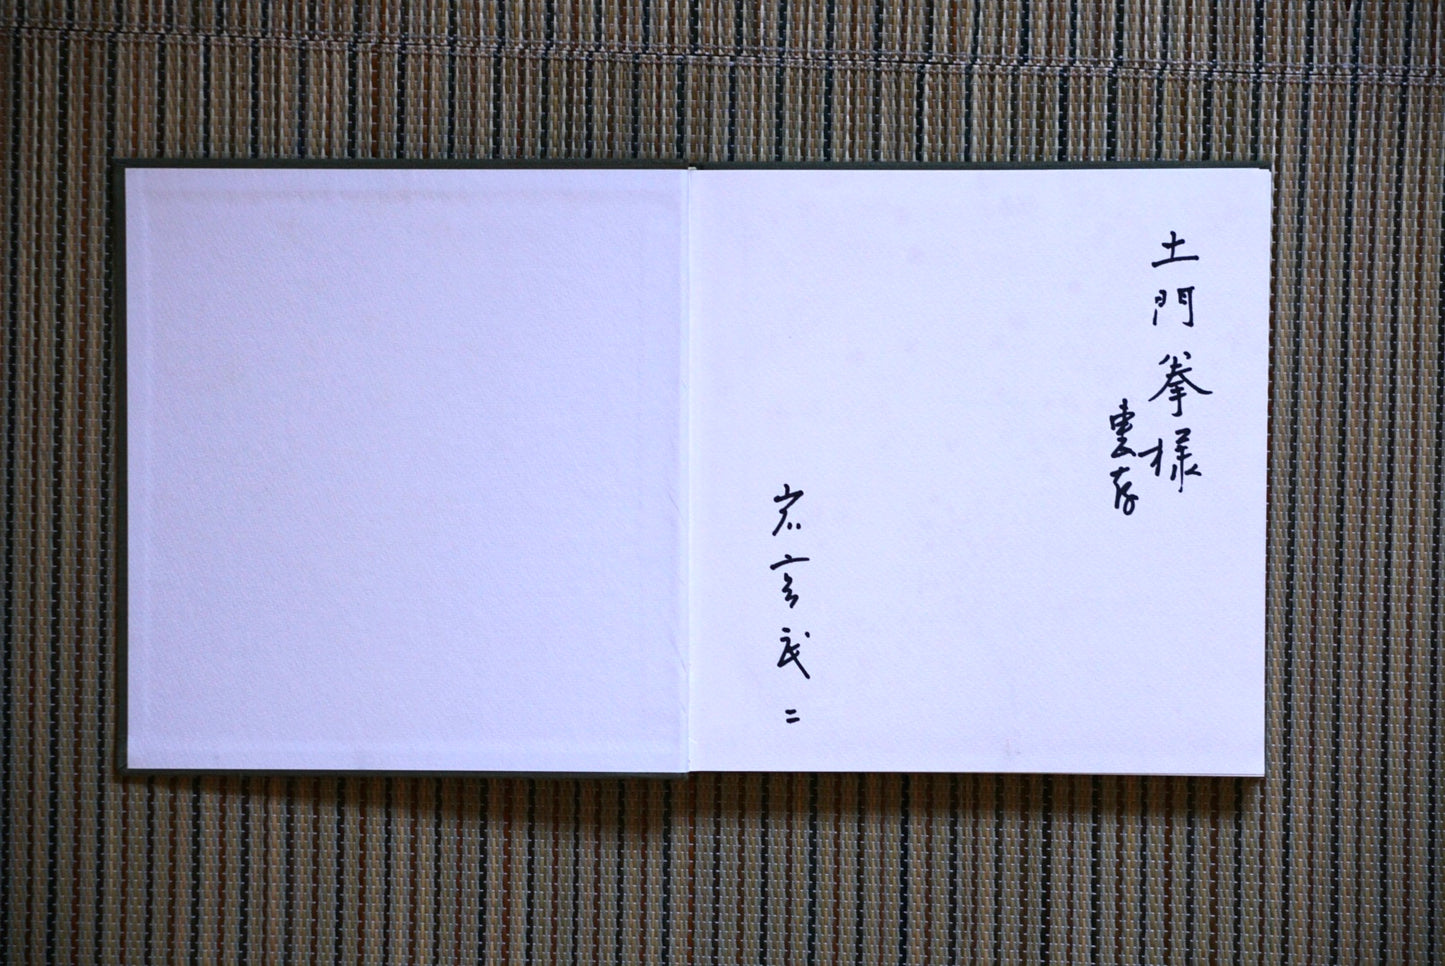 土門拳様
惠存
岩宮武二